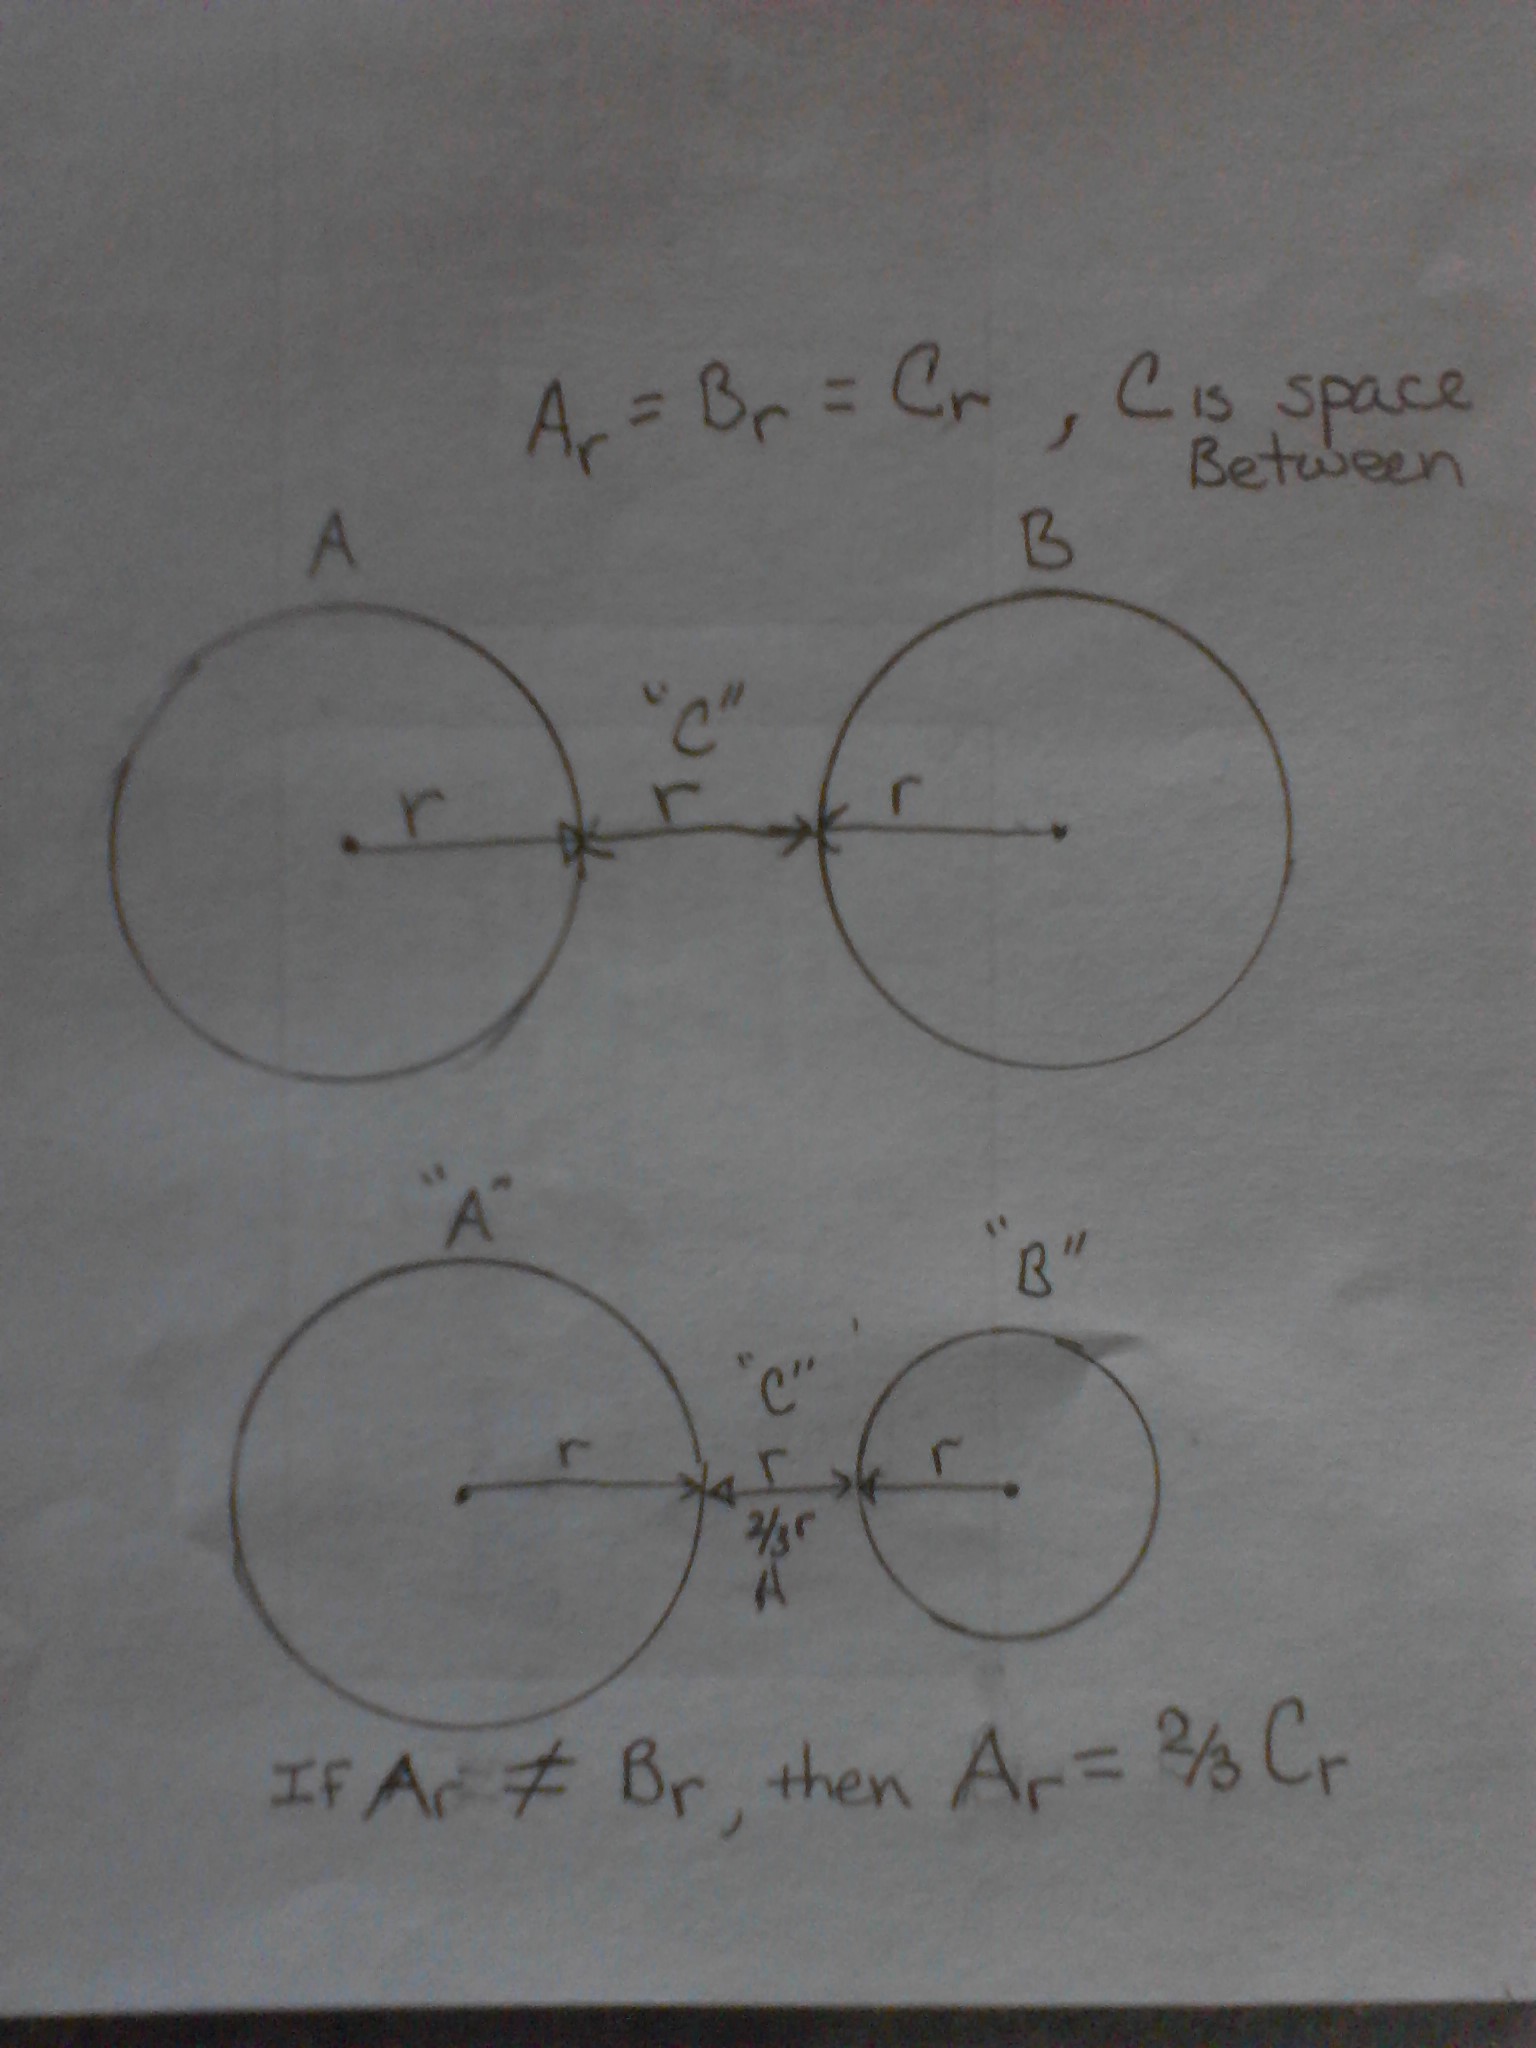 Ar = Br = Cr , C is space
Between
A B
"C"
r r r
"A"
"B"
"C"
r r r
2/3 r
A
If Ar ≠ Br, then Ar = 2/3 Cr